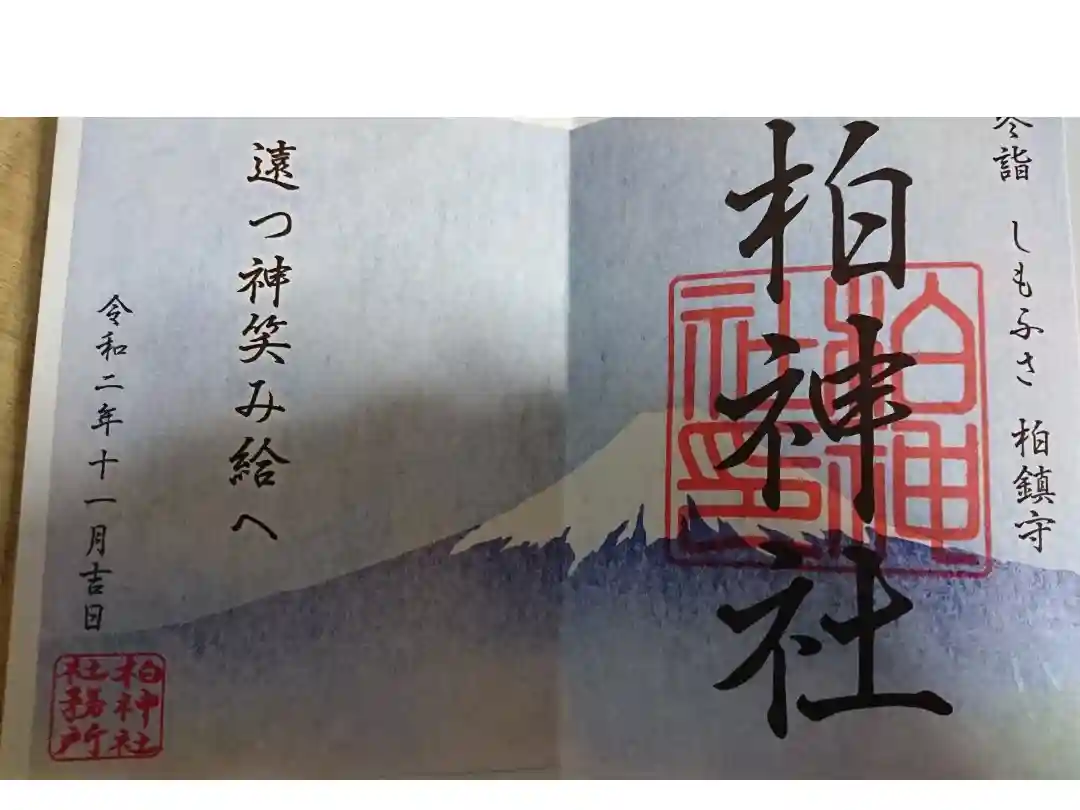 参詣 しもふさ 柏鎮守
柏神社
柏神社印
遠つ神笑み給へ
令和二年十一月吉日
柏神社
社務所